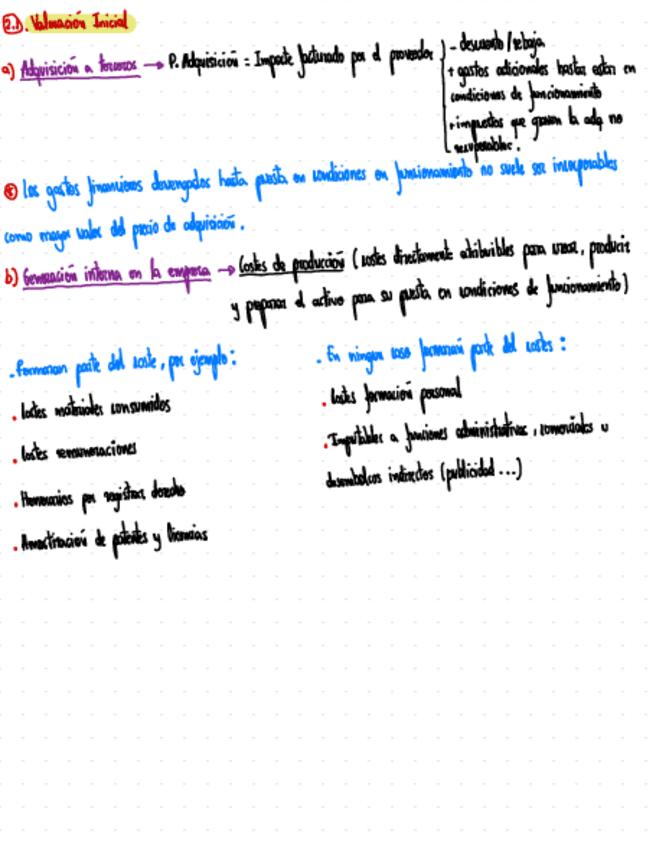 2.1. Valoración Inicial
a) Adquisición a terceros → P. Adquisición = Importe facturado por el proveedor
- descuento/rebaja
+ gastos adicionales hasta estar en
condiciones de funcionamiento
+ impuestos que graven la adq no
recuperables.
* Los gastos financieros devengados hasta puesta en condiciones en funcionamiento no suele ser incorporables
como mayor valor del precio de adquisición.
b) Generación interna en la empresa → Costes de producción (costes directamente atribuibles para crear, producir
y preparar el activo para su puesta en condiciones de funcionamiento)
- Formaran parte del coste, por ejemplo:
· Costes materiales consumidos
· Costes remuneraciones
· Honorarios por registrar derecho
· Amortización de patentes y licencias
- En ningun caso formarán parte del costes:
· Costes formación personal
· Imputables a funciones administrativas, comerciales u
desembolsos indirectos (publicidad ...)